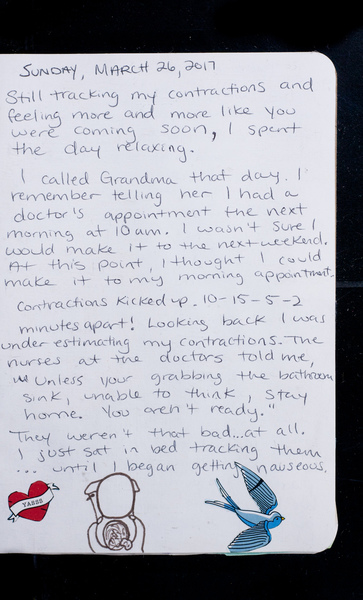 SUNDAY, MARCH 26, 2017
Still tracking my contractions and
feeling more and more like you
were coming soon, I spent
the day relaxing.
I called Grandma that day. I
remember telling her I had a
doctor's appointment the next
morning at 10 am. I wasn't sure I
would make it to the next weekend.
At this point, I thought I could
make it to my morning appointment.
Contractions kicked up. 10-15-5-2
minutes apart! Looking back I was
under estimating my contractions. The
nurses at the doctors told me,
"Unless your grabbing the bathroom
sink, unable to think, stay
home. You aren't ready."
They weren't that bad...at all.
I just sat in bed tracking them
... until I began getting nauseous.
YASSS